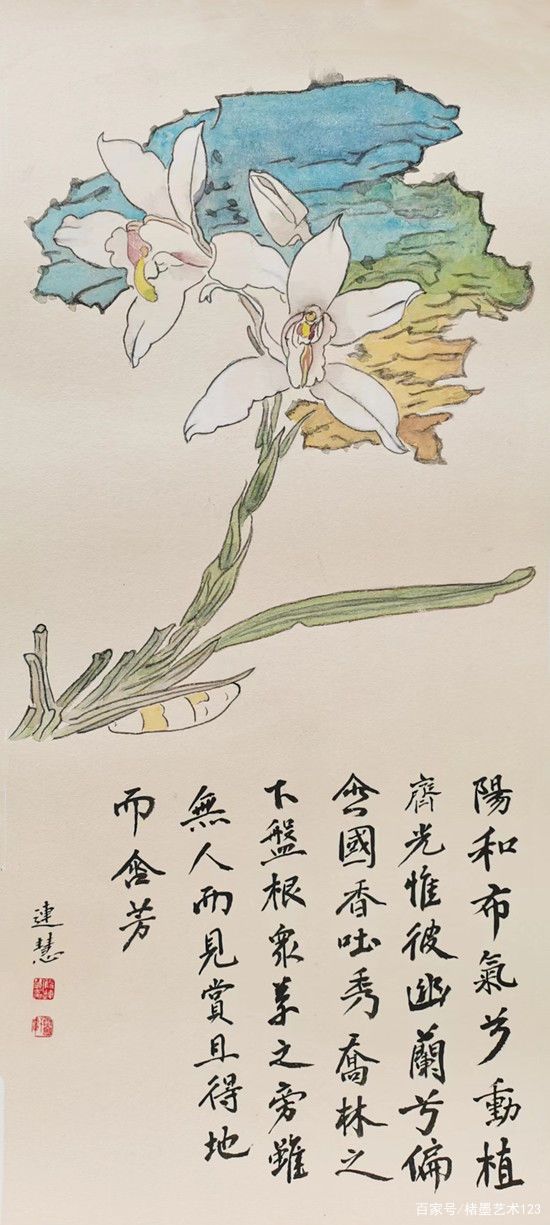 陽和布氣兮動植
齊光惟彼幽蘭兮偏
含國香吐秀喬林之
下盤根衆草之旁雖
無人而見賞且得地
而含芳
連慧
百家号/楮墨艺术123